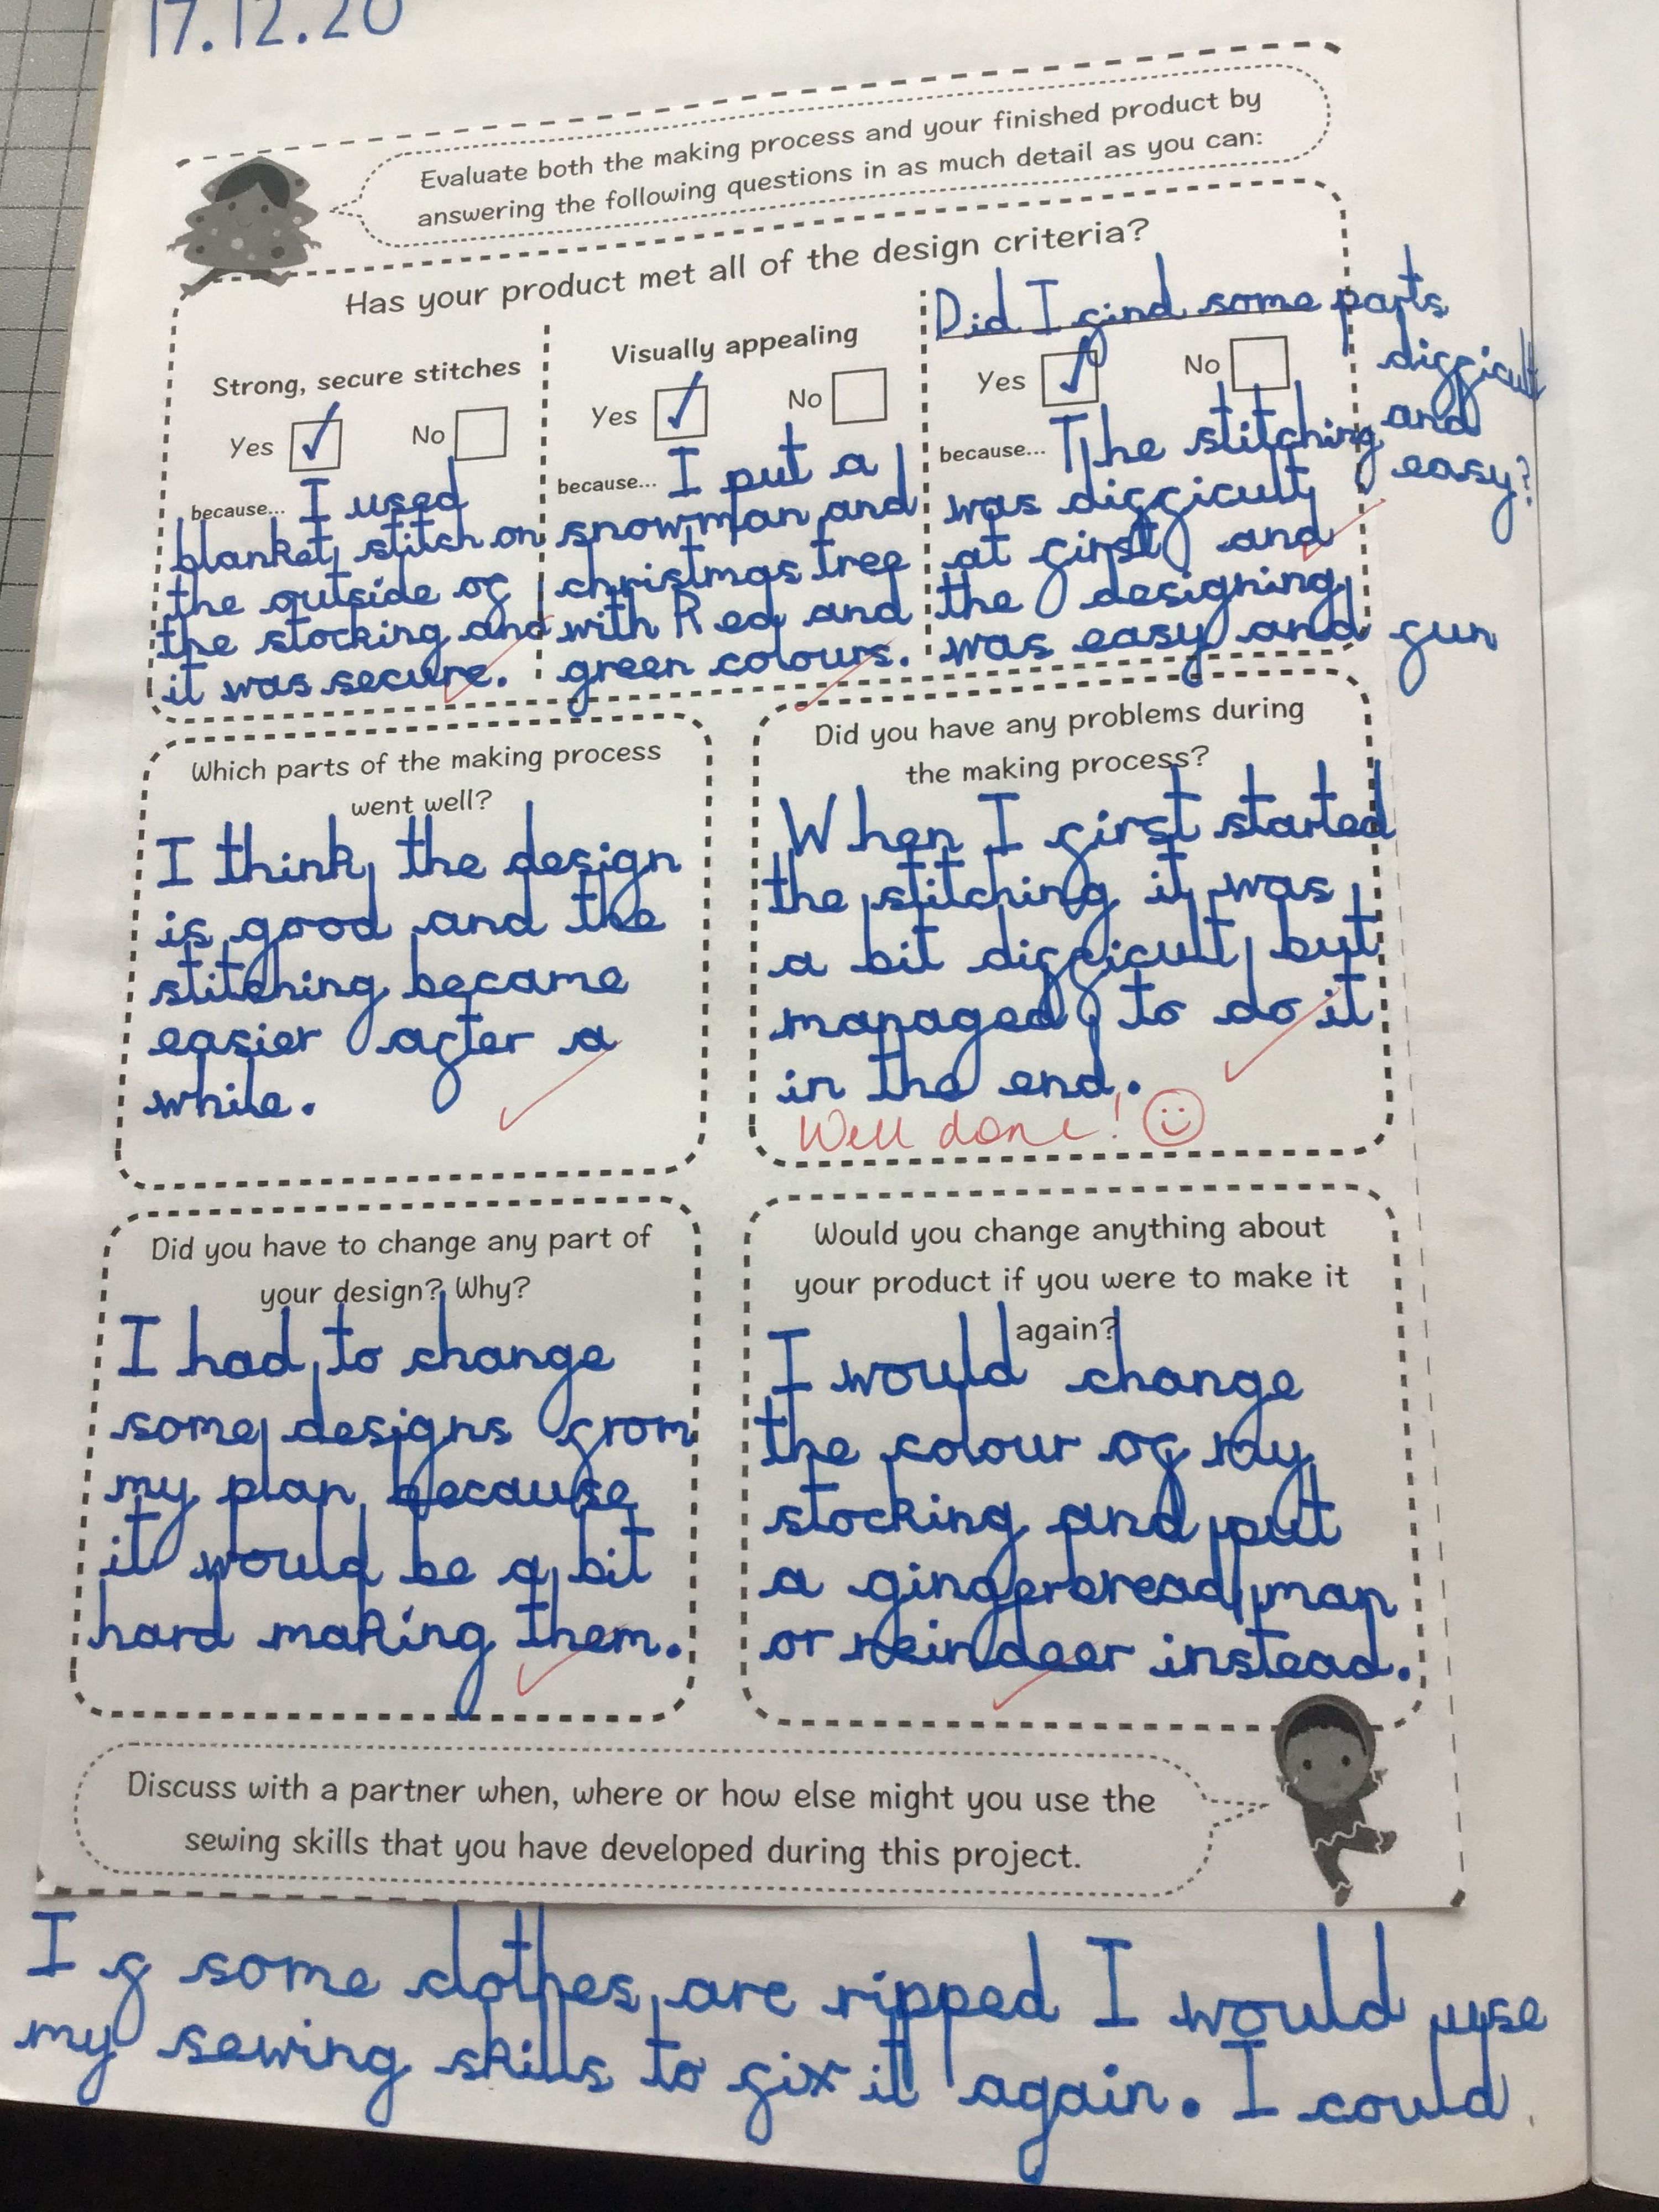 17.12.20
Evaluate both the making process and your finished product by
answering the following questions in as much detail as you can:
Has your product met all of the design criteria?
Strong, secure stitches
Yes
No
because... I used
blanket stitch on
the outside of
the stocking and
it was secure.
Visually appealing
Yes
No
because... I put a
snowman and
christmas tree
with Red and
green colours.
Did I find some parts
difficult
and
easy?
Yes
No
because... The stitching
was difficult
at first and
the designing
was easy and fun
Which parts of the making process
went well?
I think the design
is good and the
stitching became
easier after a
while.
Did you have any problems during
the making process?
When I first started
the stitching it was
a bit difficult but
managed to do it
in the end.
Well done!
Did you have to change any part of
your design? Why?
I had to change
some designs from
my plan because
it would be a bit
hard making them.
Would you change anything about
your product if you were to make it
again?
I would change
the colour of my
stocking and put
a gingerbread man
or reindeer instead.
Discuss with a partner when, where or how else might you use the
sewing skills that you have developed during this project.
If some clothes are ripped I would use
my sewing skills to fix it again. I could